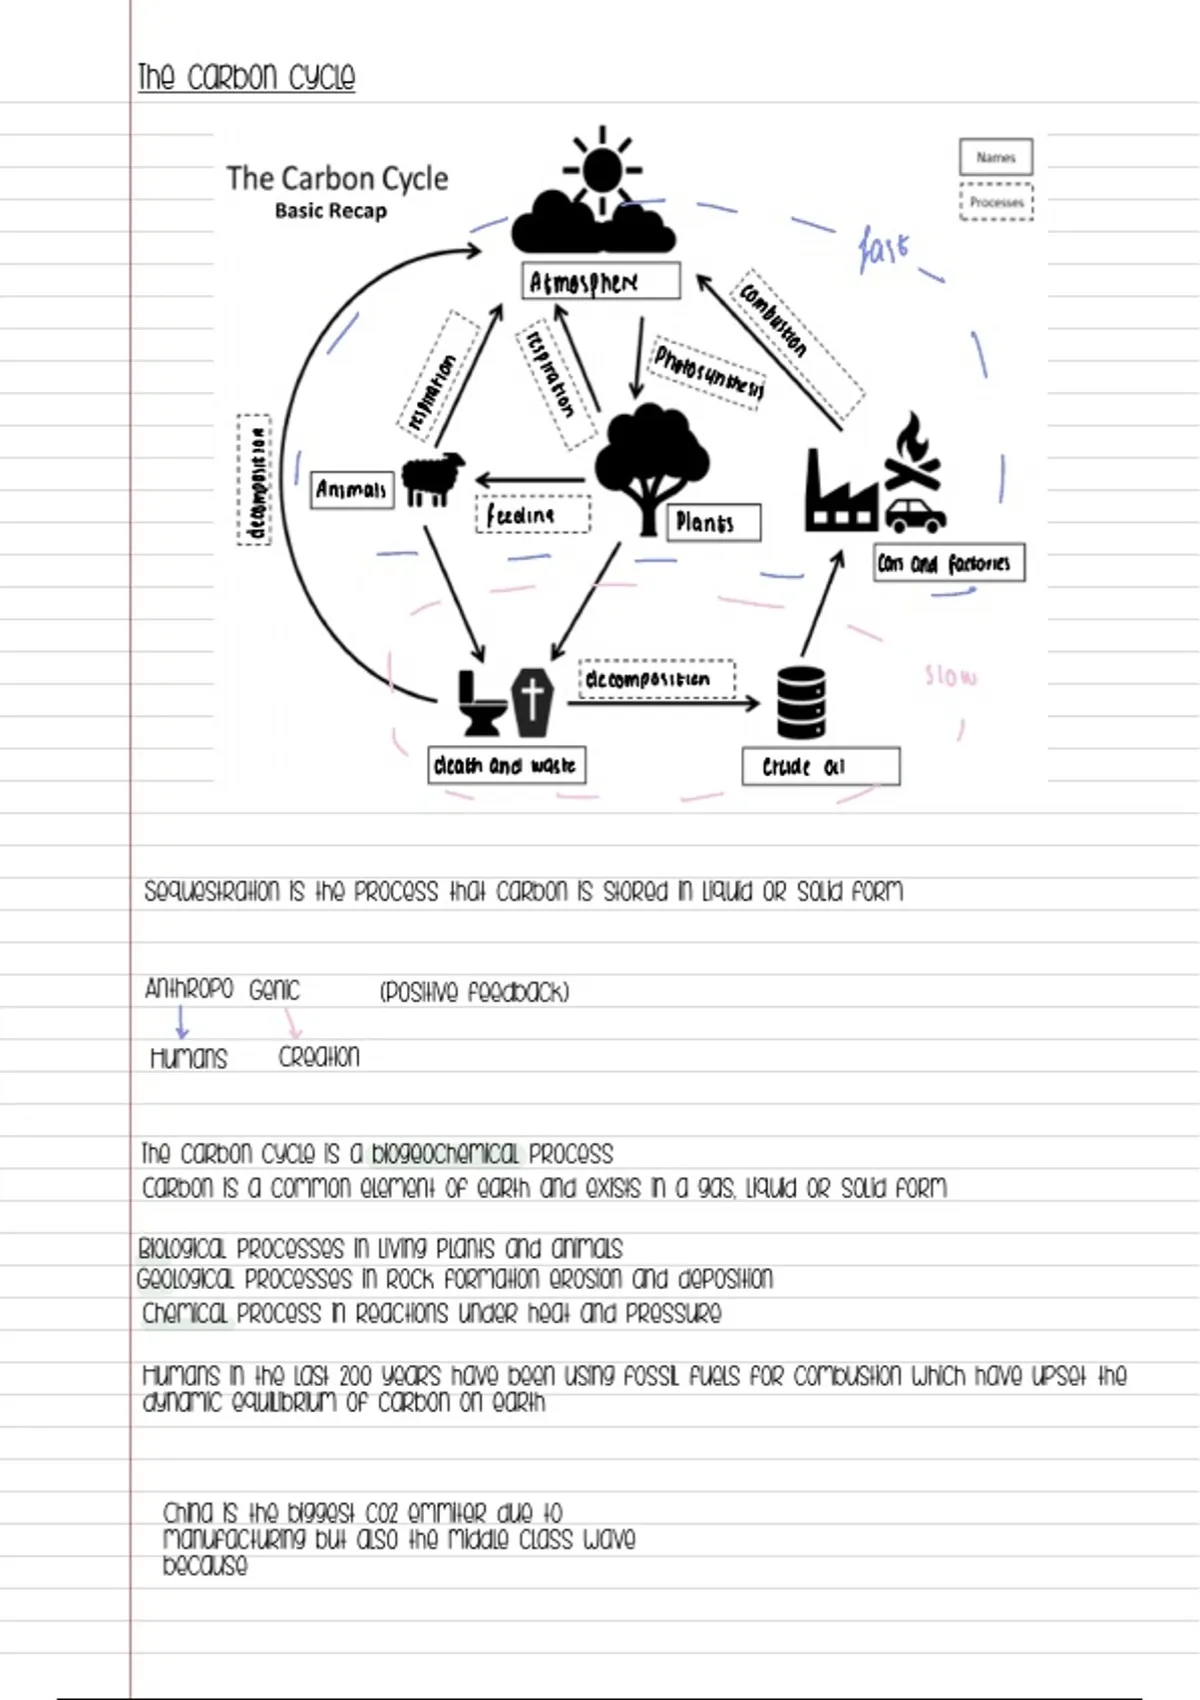 The Carbon Cycle
The Carbon Cycle
Basic Recap
Names
Processes
fast
Atmosphere
combustion
respiration
respiration
Photosynthesis
decomposition
Animals
feeding
Plants
Cars and factories
decomposition
slow
death and waste
crude oil
Sequestration is the process that carbon is stored in liquid or solid form
Anthropo Genic (Positive feedback)
Humans Creation
The carbon cycle is a biogeochemical process
Carbon is a common element of earth and exists in a gas, liquid or solid form
Biological processes in living plants and animals
Geological processes in rock formation erosion and deposition
Chemical process in reactions under heat and pressure
Humans in the last 200 years have been using fossil fuels for combustion which have upset the
dynamic equilibrium of carbon on earth
China is the biggest CO2 emmiter due to
manufacturing but also the middle class wave
because